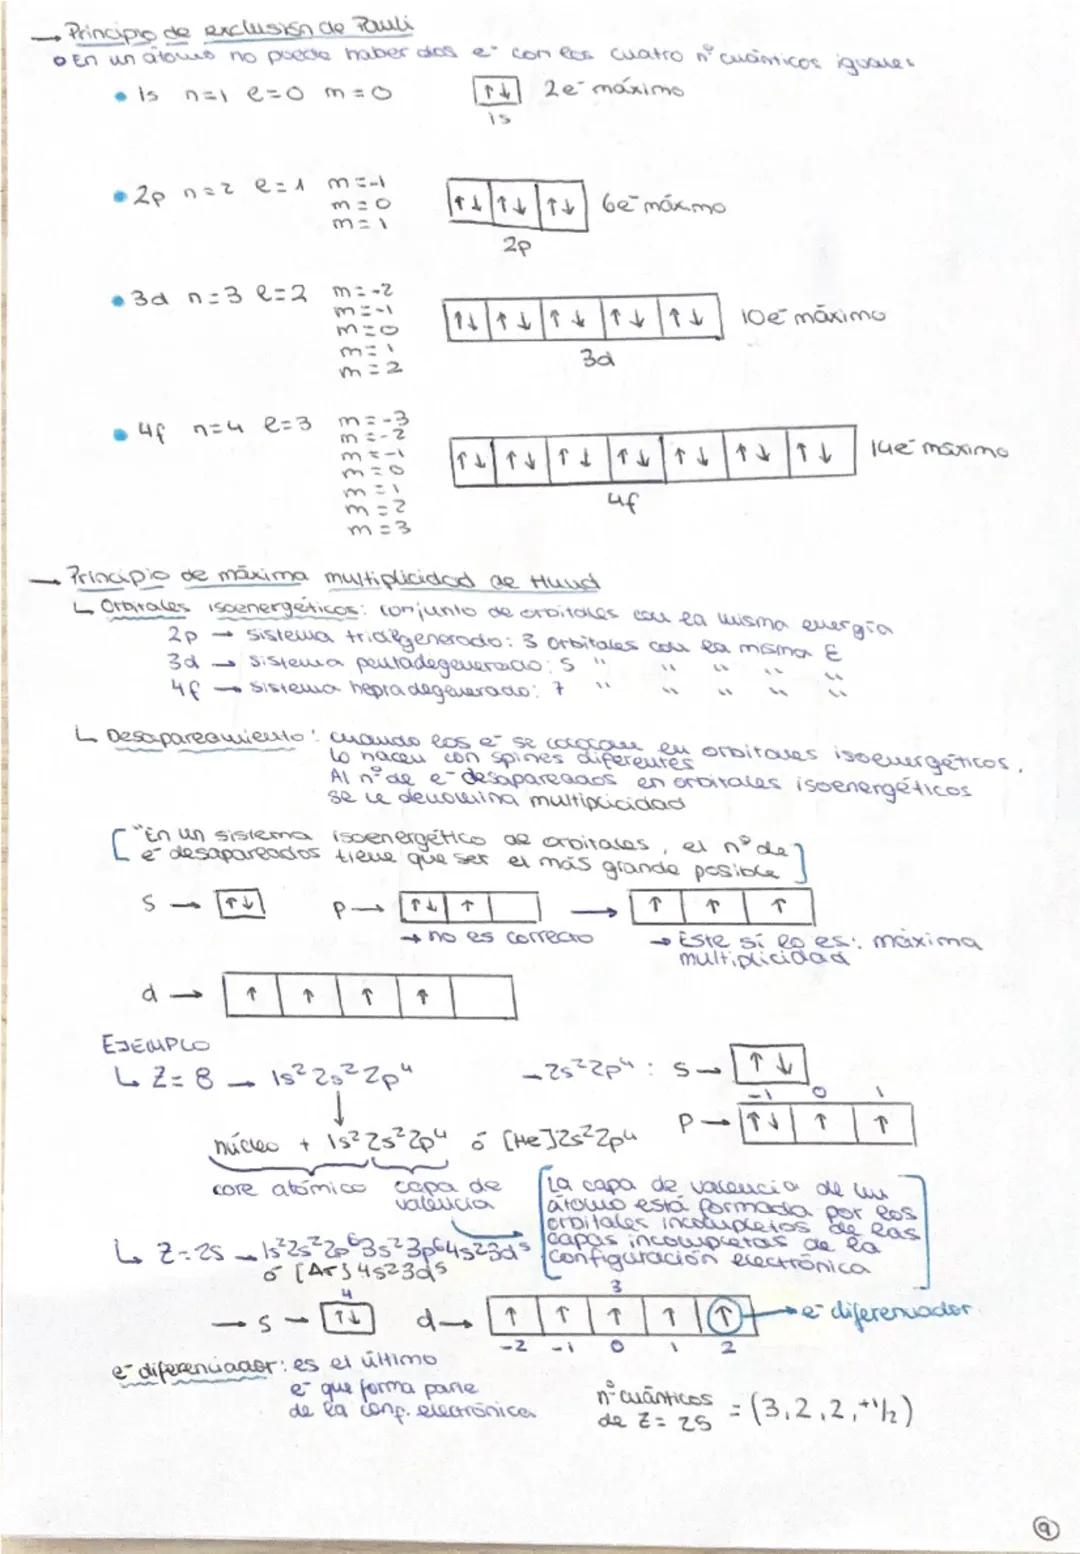 → Principio de exclusión de Pauli
○ En un átomo no puede haber dos e⁻ con los cuatro nº cuánticos iguales
• 1s n=1 l=0 m=0 ↑↓ 2e⁻ máximo
1s
• 2p n=2 l=1 m=-1
m=0
m=1
↑↓ ↑↓ ↑↓ 6e⁻ máximo
2p
• 3d n=3 l=2 m=-2
m=-1
m=0
m=1
m=2
↑↓ ↑↓ ↑↓ ↑↓ ↑↓ 10e⁻ máximo
3d
• 4f n=4 l=3 m=-3
m=-2
m=-1
m=0
m=1
m=2
m=3
↑↓ ↑↓ ↑↓ ↑↓ ↑↓ ↑↓ ↑↓ 14e⁻ máximo
4f
→ Principio de máxima multiplicidad de Huud
↳ Orbitales isoenergéticos: conjunto de orbitales con la misma energía
2p → sistema tridegenerado: 3 orbitales con la misma E
3d → sistema pentadegenerado: 5 " " " " "
4f → sistema heptadegenerado: 7 " " " " "
↳ Desapareamiento: cuando los e⁻ se colocan en orbitales isoenergéticos,
lo hacen con spines diferentes
Al nº de e⁻ desapareados en orbitales isoenergéticos
se le denomina multiplicidad
["En un sistema isoenergético de orbitales, el nº de
e⁻ desapareados tiene que ser el más grande posible]
s → ↑↓ p → ↑↓ ↑ → ↑ ↑ ↑
→ no es correcto → Este sí lo es: máxima
multiplicidad
d → ↑ ↑ ↑ ↑
EJEMPLO
↳ Z=8 → 1s² 2s² 2p⁴ → 2s² 2p⁴: s → ↑↓
↓
-1 0 1
p → ↑↓ ↑ ↑
núcleo + 1s² 2s² 2p⁴ ó [He] 2s² 2p⁴
core atómico capa de
valencia
[La capa de valencia de un
átomo está formada por los
orbitales incompletos de las
capas incompletas de la
configuración electrónica]
↳ Z=25 → 1s² 2s² 2p⁶ 3s² 3p⁶ 4s² 3d⁵
ó [Ar] 4s² 3d⁵
4 3
→ s → ↑↓ d → ↑ ↑ ↑ ↑ ↑ → e⁻ diferenciador
-2 -1 0 1 2
e⁻ diferenciador: es el último
e⁻ que forma parte
de la conf. electrónica
nº cuánticos
de Z=25 = (3,2,2,+1/2)
9